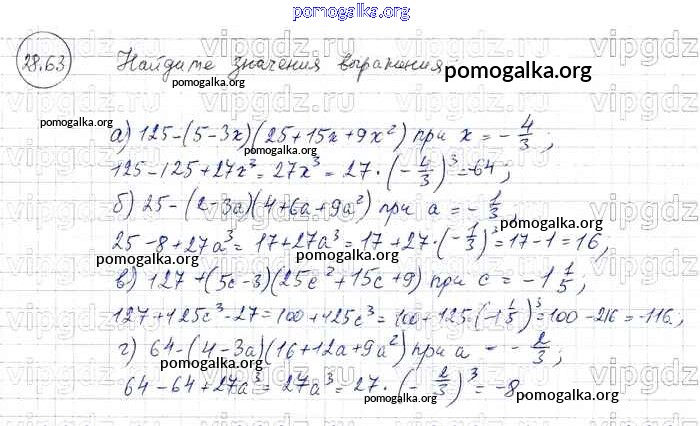 pomogalka.org
28.63 Найдите значения выражения:
pomogalka.org
pomogalka.org
pomogalka.org
а) 125-(5-3x)(25+15x+9x²) при x = -4/3;
125-125+27x³=27x³=27·(-4/3)³=-64;
pomogalka.org
б) 25-(2-3a)(4+6a+9a²) при a = -1/3,
pomogalka.org
25-8+27a³=17+27a³=17+27·(-1/3)³=17-1=16,
pomogalka.org
в) 127+(5c-3)(25c²+15c+9) при c = -1 1/5;
127+125c³-27=100+125c³=100+125·(-1 1/5)³=100-216=-116.,
г) 64-(4-3a)(16+12a+9a²) при a = -2/3;
pomogalka.org
pomogalka.org
64-64+27a³=27a³=27·(-2/3)³=-8
pomogalka.org
pomogalka.org